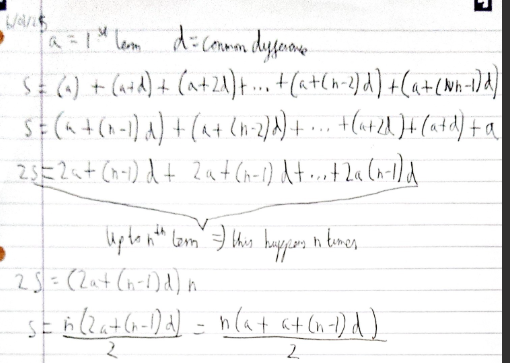 6/01/25
a = 1st term d = common difference
S = (a) + (a+d) + (a+2d) + ... + (a+(n-2)d) + (a+(n-1)d)
S = (a+(n-1)d) + (a+(n-2)d) + ... + (a+2d) + (a+d) + a
2S = 2a+(n-1)d + 2a+(n-1)d + ... + 2a(n-1)d
Up to nth term ⇒ this happens n times
2S = (2a+(n-1)d)n
S = n(2a+(n-1)d)/2 = n(a + a+(n-1)d)/2